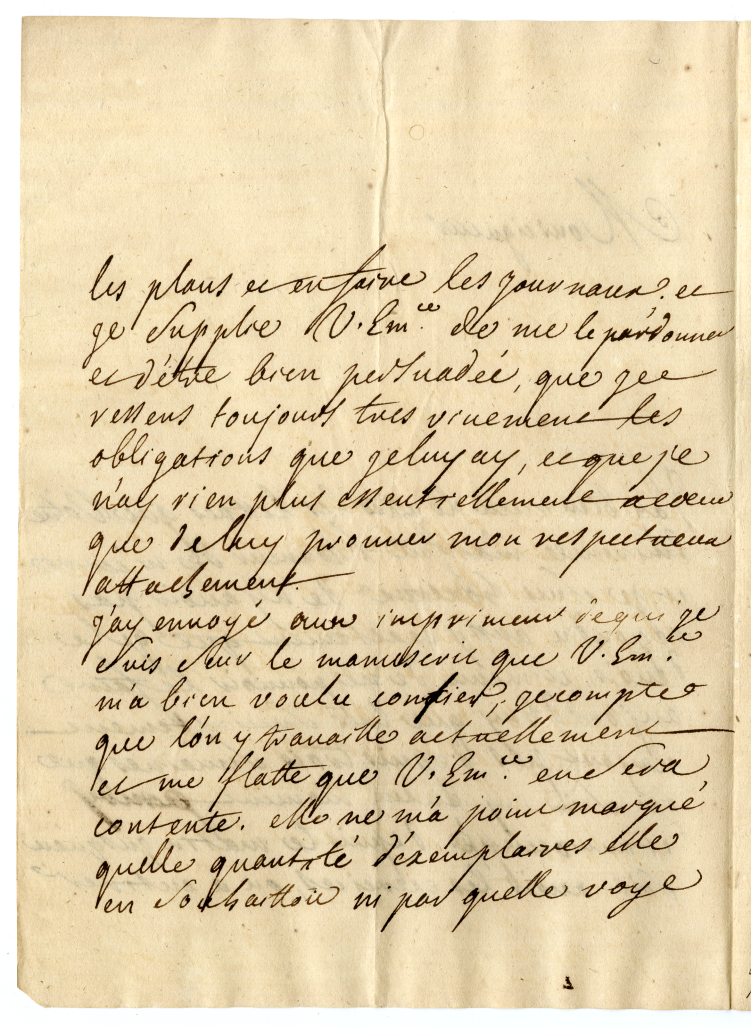 les plans et en faire les journaux. et
je supplie V. Em.ce de me le pardonner
et d'étre bien persuadée, que je
ressens toujours tres vivement les
obligations que je luy ay, et que je
n'ay rien plus essentiellement a coeur
que de luy prouver mon respectueux
attachement.
j'ay envoyé aux imprimeur de qui je
suis sur le manuscrit que V. Em.ce
m'a bien voulu confier, je compte
que l'on y travaille actuellement
et me flatte que V. Em.ce en sera
contente. elle ne m'a point marqué
quelle quantité d'éxemplaires elle
en souhaittoit ni par quelle voye